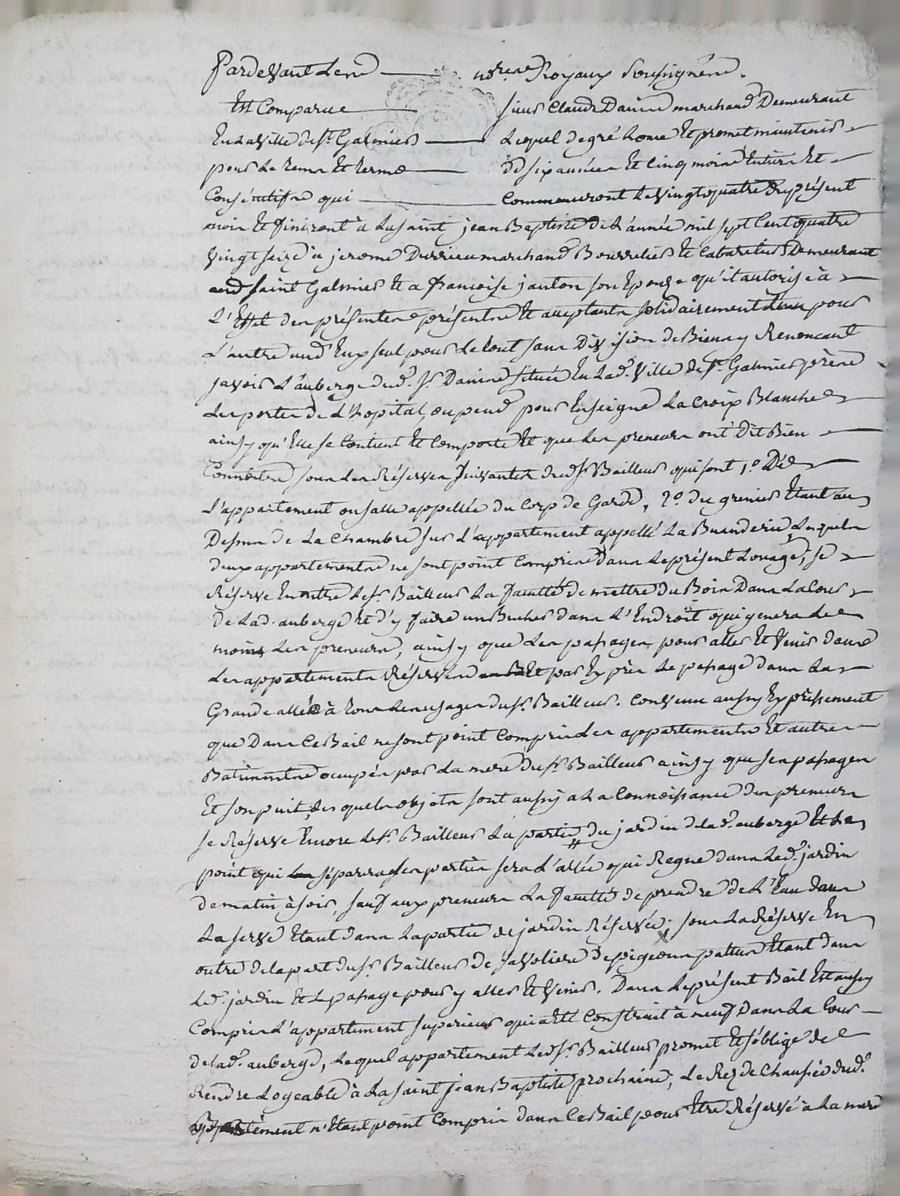 Pardevant Les nores Royaux Soussignés.
Est Comparue sieur Claude Marchand Demeurant
En La Ville de St. Galmier Lequel de gré Loue Et promet maintenir
pour Le tems Et terme de six années Et Cinq mois Entiers Et
Consécutifs qui Commenceront Le Vingt quatre du présent
mois Et finiront à La saint jean Baptiste de L'année mil sept Cent quatre
Vingt seize à jerome marchand Bourrelier Et Cabaretier Demeurant
aud. saint Galmier Et a francoise janton son Epouse qu'il autorise à
L'Effet des présentes présents Et acceptants solidairement L'un pour
L'autre un d'Eux seul pour Le tout sans Division de Biens y Renoncant
savoir L'auberge dud. Sr. située En Lad. Ville de St. Galmier près
Les portes de L'hopital, ou pend pour Enseigne La Croix Blanche
ainsy qu'Elle se Contient Et Comporte Et que Les preneurs ont Dit Bien
Connoitre sous Les Réserves suivantes dud. Sr. Bailleur qui sont 1.o De
L'appartement ou salle appellée du Corp de Garde, 2.o du grenier Etant au
Dessus de La Chambre sur L'appartement appellé La Buanderie Lesquels
deux appartements ne sont point Compris dans Le présent Louage; se
Réserve En outre Led. Sr. Bailleur La faculté de mettre du Bois Dans La Cour
de Lad. auberge Et d'y faire un Bucher dans L'Endroit qui genera Le
moins Les preneurs, ainsy que Les passages pour aller Et Venir dans
Les appartements Réservés Et par Exprès Le passage dans La
Grande allée à tous Les usages dud. Sr. Bailleur. Convenu aussy Expressement
que Dans Ce Bail ne sont point Compris Les appartements Et autres
Batiments occupés par La mere dud. Sr. Bailleur ainsy que ses passages
Et son puit, Lesquels objets sont aussy a La Connoissance des preneurs
se Réserve Encore Led. Sr. Bailleur La partie du jardin de Lad. auberge Et Le
point qui séparera Les parties sera L'allée qui Regne dans Led. jardin
de matin à soir, sauf aux preneurs La faculté de prendre de L'Eau dans
La serve Etant dans La partie de jardin Réservée; sous La Réserve En
outre de La part dud. Sr. Bailleur de sa Voliere de pigeons pattus Etant dans
Led. jardin Et Le passage pour y aller Et Venir. Dans Le présent Bail Est aussy
Compris L'appartement superieur qui a Eté Construit à neuf Dans La Cour
de Lad. auberge, Lequel appartement Led. Sr. Bailleur promet Et s'oblige de
Rendre Logeable à La saint jean Baptiste prochaine, Le Rez de Chaussée dud.
appartement n'Etant point Compris dans Ce Bail pour Etre Réservé à La mere